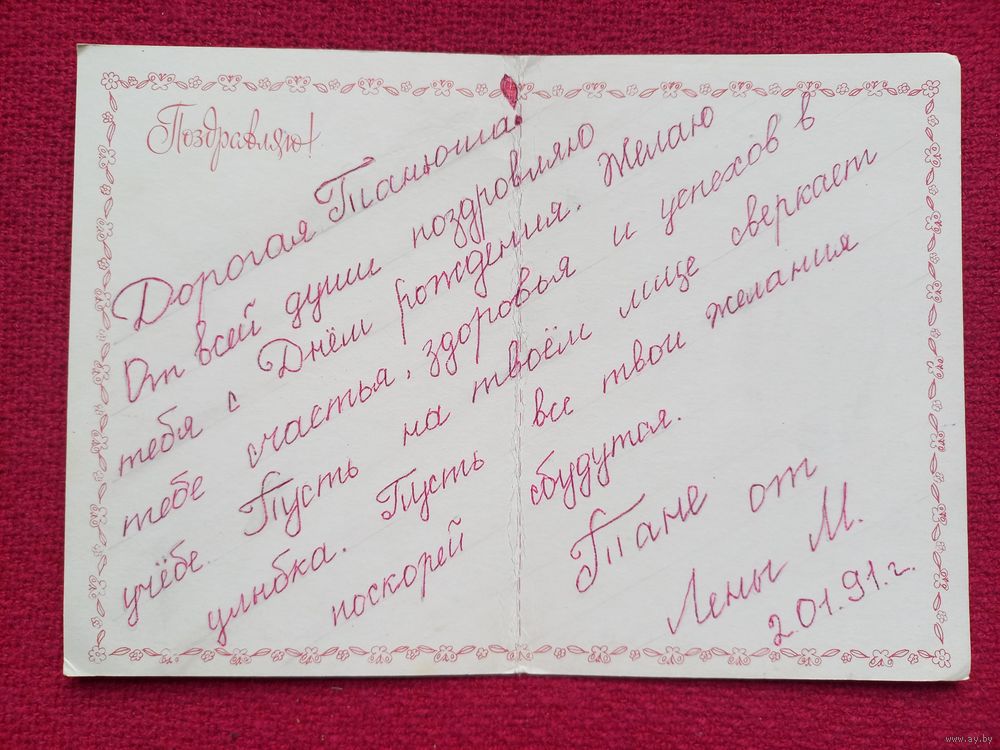 Поздравляю!
Дорогая Танюша!
От всей души поздровляю
тебя с Днём рождения. Желаю
тебе счастья, здоровья и успехов в
учёбе. Пусть на твоём лице сверкает
улыбка. Пусть все твои желания
поскорей сбудутся.
Тане от
Лены М.
2.01.91.г.
www.ay.by